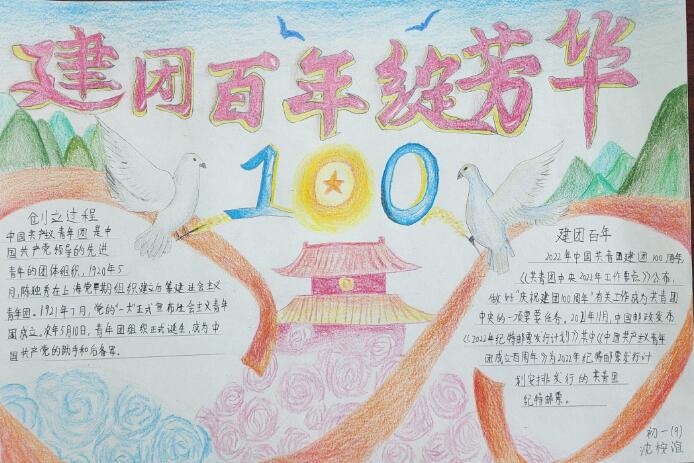 建团百年绽芳华
100
创立过程
中国共产主义青年团是中
国共产党领导的先进
青年的团体组织,1920年5
月,陈独秀在上海党早期组织建立后筹建社会主义
青年团。1921年7月,党的"一大"正式宣布社会主义青年
团成立,次年5月10日,青年团组织正式诞生,成为中
国共产党的助手和后备军。
建团百年
2022年中国共青团建团100周年,
《共青团中央2022年工作要点》公布,
做好"庆祝建团100周年"有关工作成为共青团
中央的一项重要任务。2021年11月,中国邮政发布
《2022年纪特邮票发行计划》,其中《中国共产主义青年
团成立百周年》为2022年纪特邮票发行计
划安排发行的共青团
纪特邮票。
初一(9)
沈桉谊